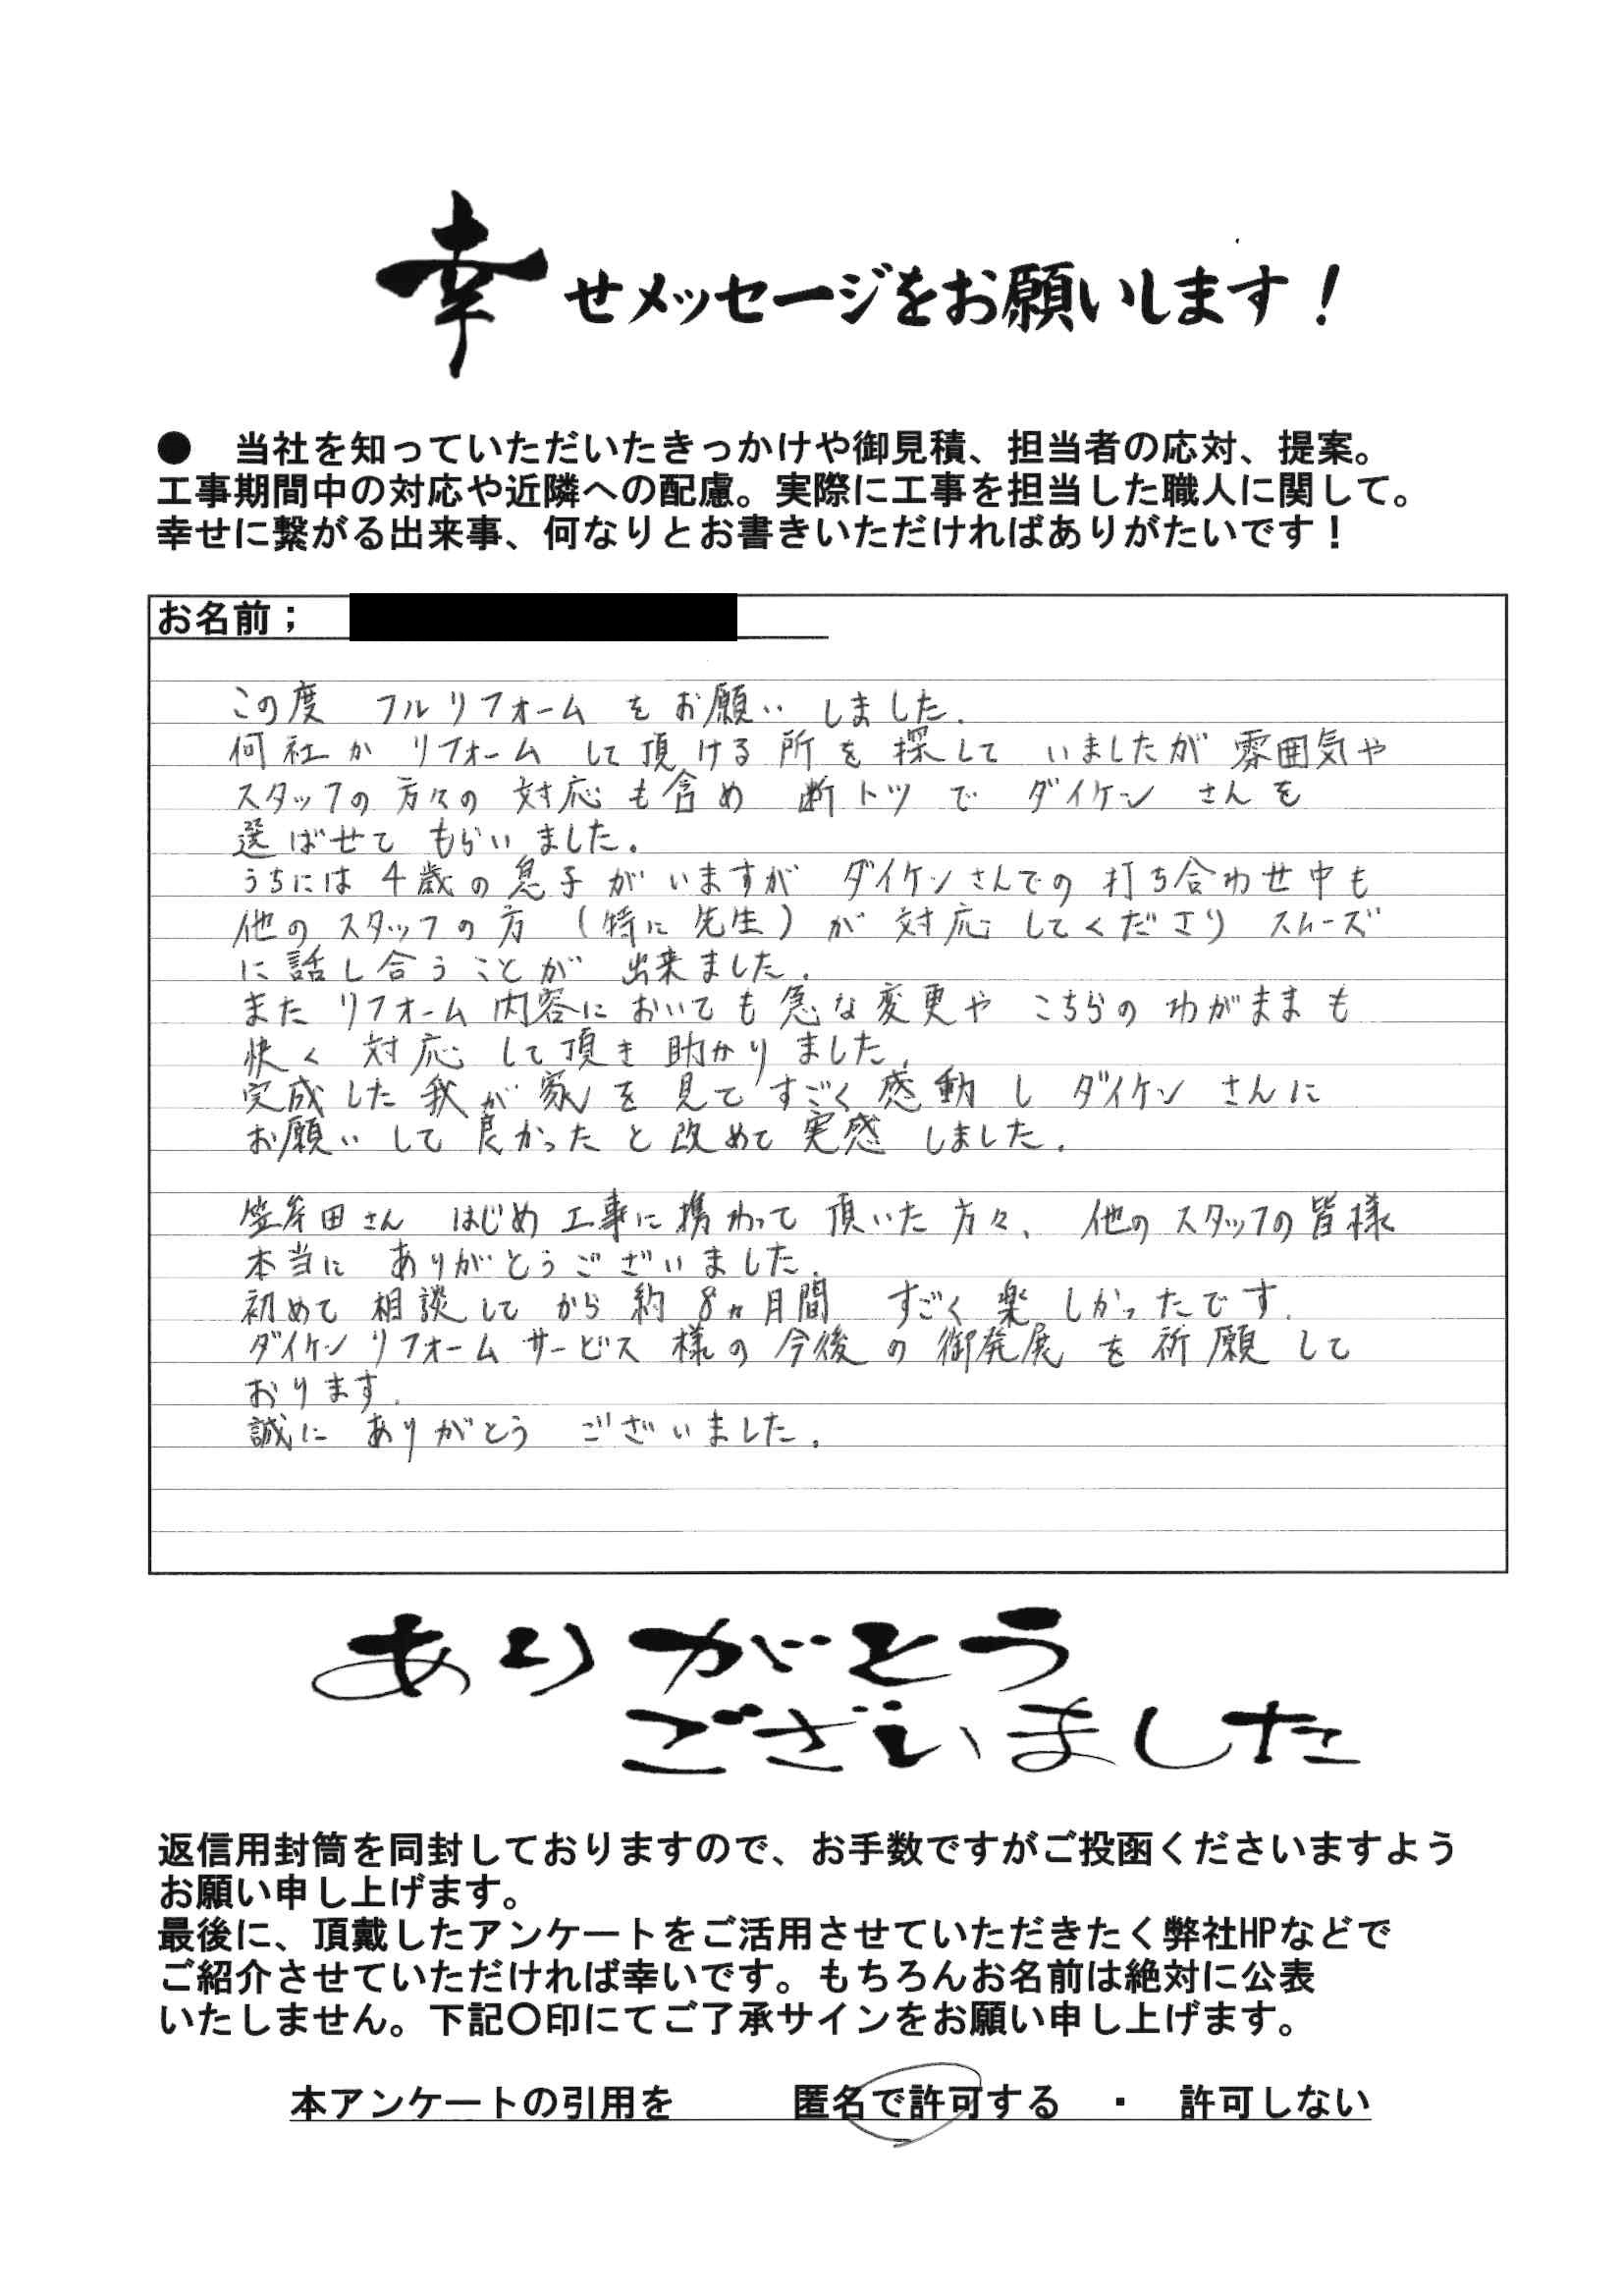 幸せメッセージをお願いします!
● 当社を知っていただいたきっかけや御見積、担当者の応対、提案。
工事期間中の対応や近隣への配慮。実際に工事を担当した職人に関して。
幸せに繋がる出来事、何なりとお書きいただければありがたいです!
お名前;
この度 フルリフォームをお願いしました.
何社かリフォームして頂ける所を探していましたが雰囲気や
スタッフの方々の対応も含め 断トツで ダイケンさんを
選ばせてもらいました.
うちには4歳の息子がいますが ダイケンさんでの打ち合わせ中も
他のスタッフの方(特に先生)が対応してくださりスムーズ
に話し合うことが出来ました.
またリフォーム内容においても急な変更やこちらのわがままも
快く対応して頂き助かりました.
完成した我が家を見てすごく感動しダイケンさんに
お願いして良かったと改めて実感しました.
田さん はじめ工事に携わって頂いた方々、他のスタッフの皆様
本当に ありがとうございました.
初めて相談してから約8ヵ月間 すごく楽しかったです.
ダイケンリフォームサービス様の今後の御発展を祈願して
おります.
誠に ありがとう ございました.
ありがとう
ございました
返信用封筒を同封しておりますので、お手数ですがご投函くださいますよう
お願い申し上げます。
最後に、頂戴したアンケートをご活用させていただきたく弊社HPなどで
ご紹介させていただければ幸いです。もちろんお名前は絶対に公表
いたしません。下記〇印にてご了承サインをお願い申し上げます。
本アンケートの引用を 匿名で許可する ・ 許可しない